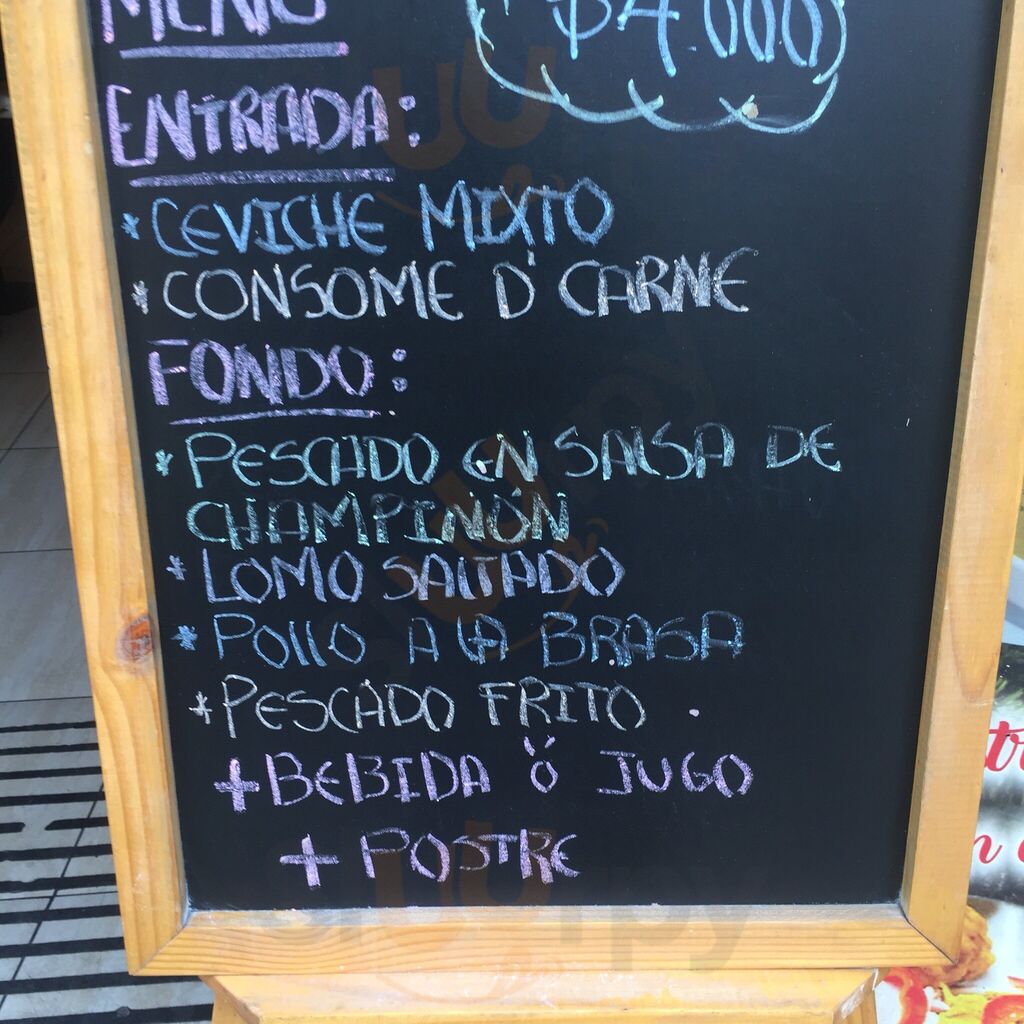 MENÚ
$4.000
ENTRADA:
* CEVICHE MIXTO
* CONSOME D' CARNE
FONDO:
* PESCADO EN SALSA DE
CHAMPIÑÓN
* LOMO SALTADO
* POLLO A LA BRASA
* PESCADO FRITO .
+ BEBIDA Ó JUGO
+ POSTRE